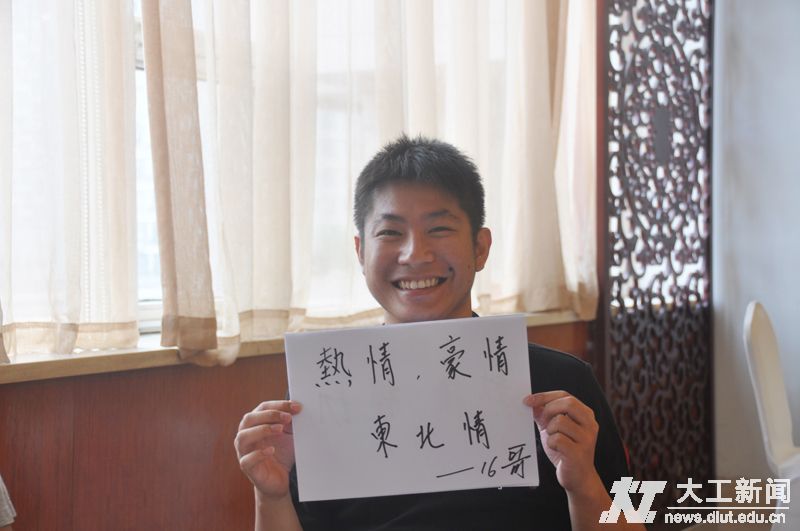 熱情，豪情
東北情
——16哥
大工新闻
news.dlut.edu.cn